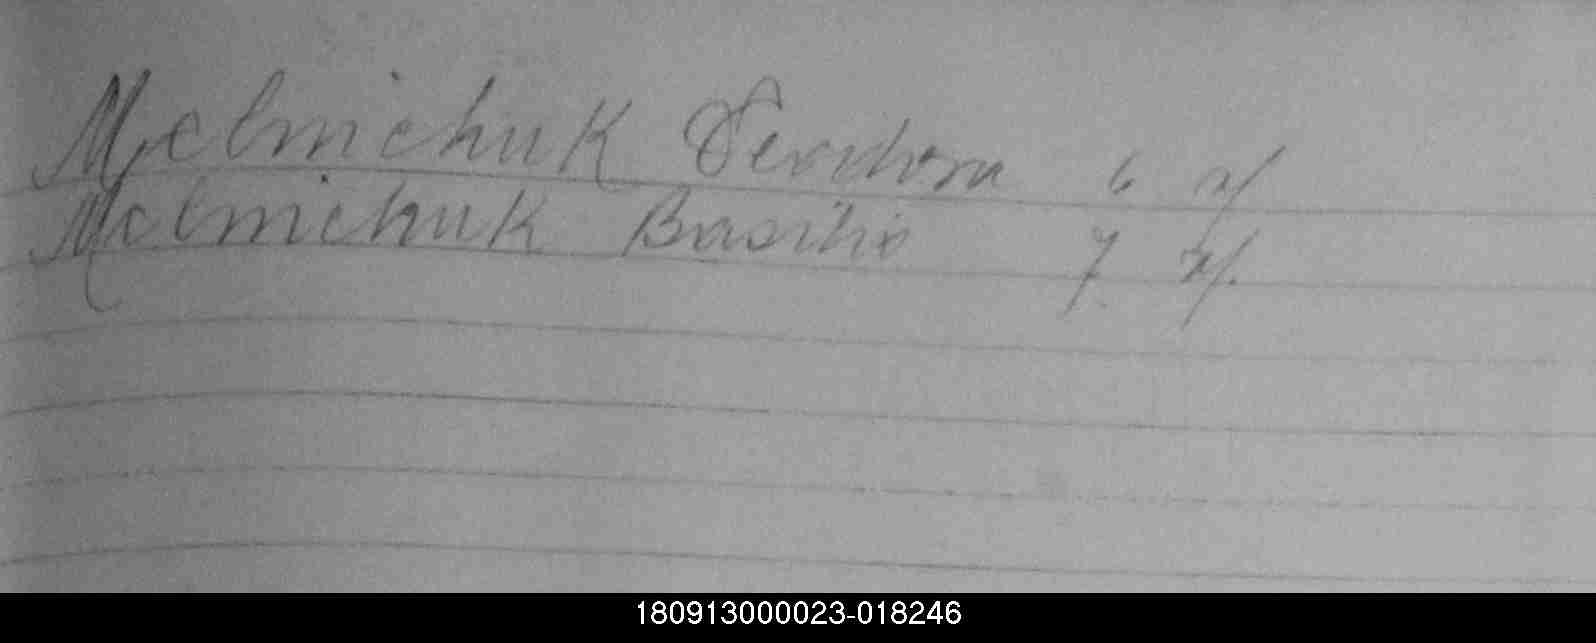 Melnichuk 6 n/
Melnichuk Basilio 7 n/.
180913000023-018246